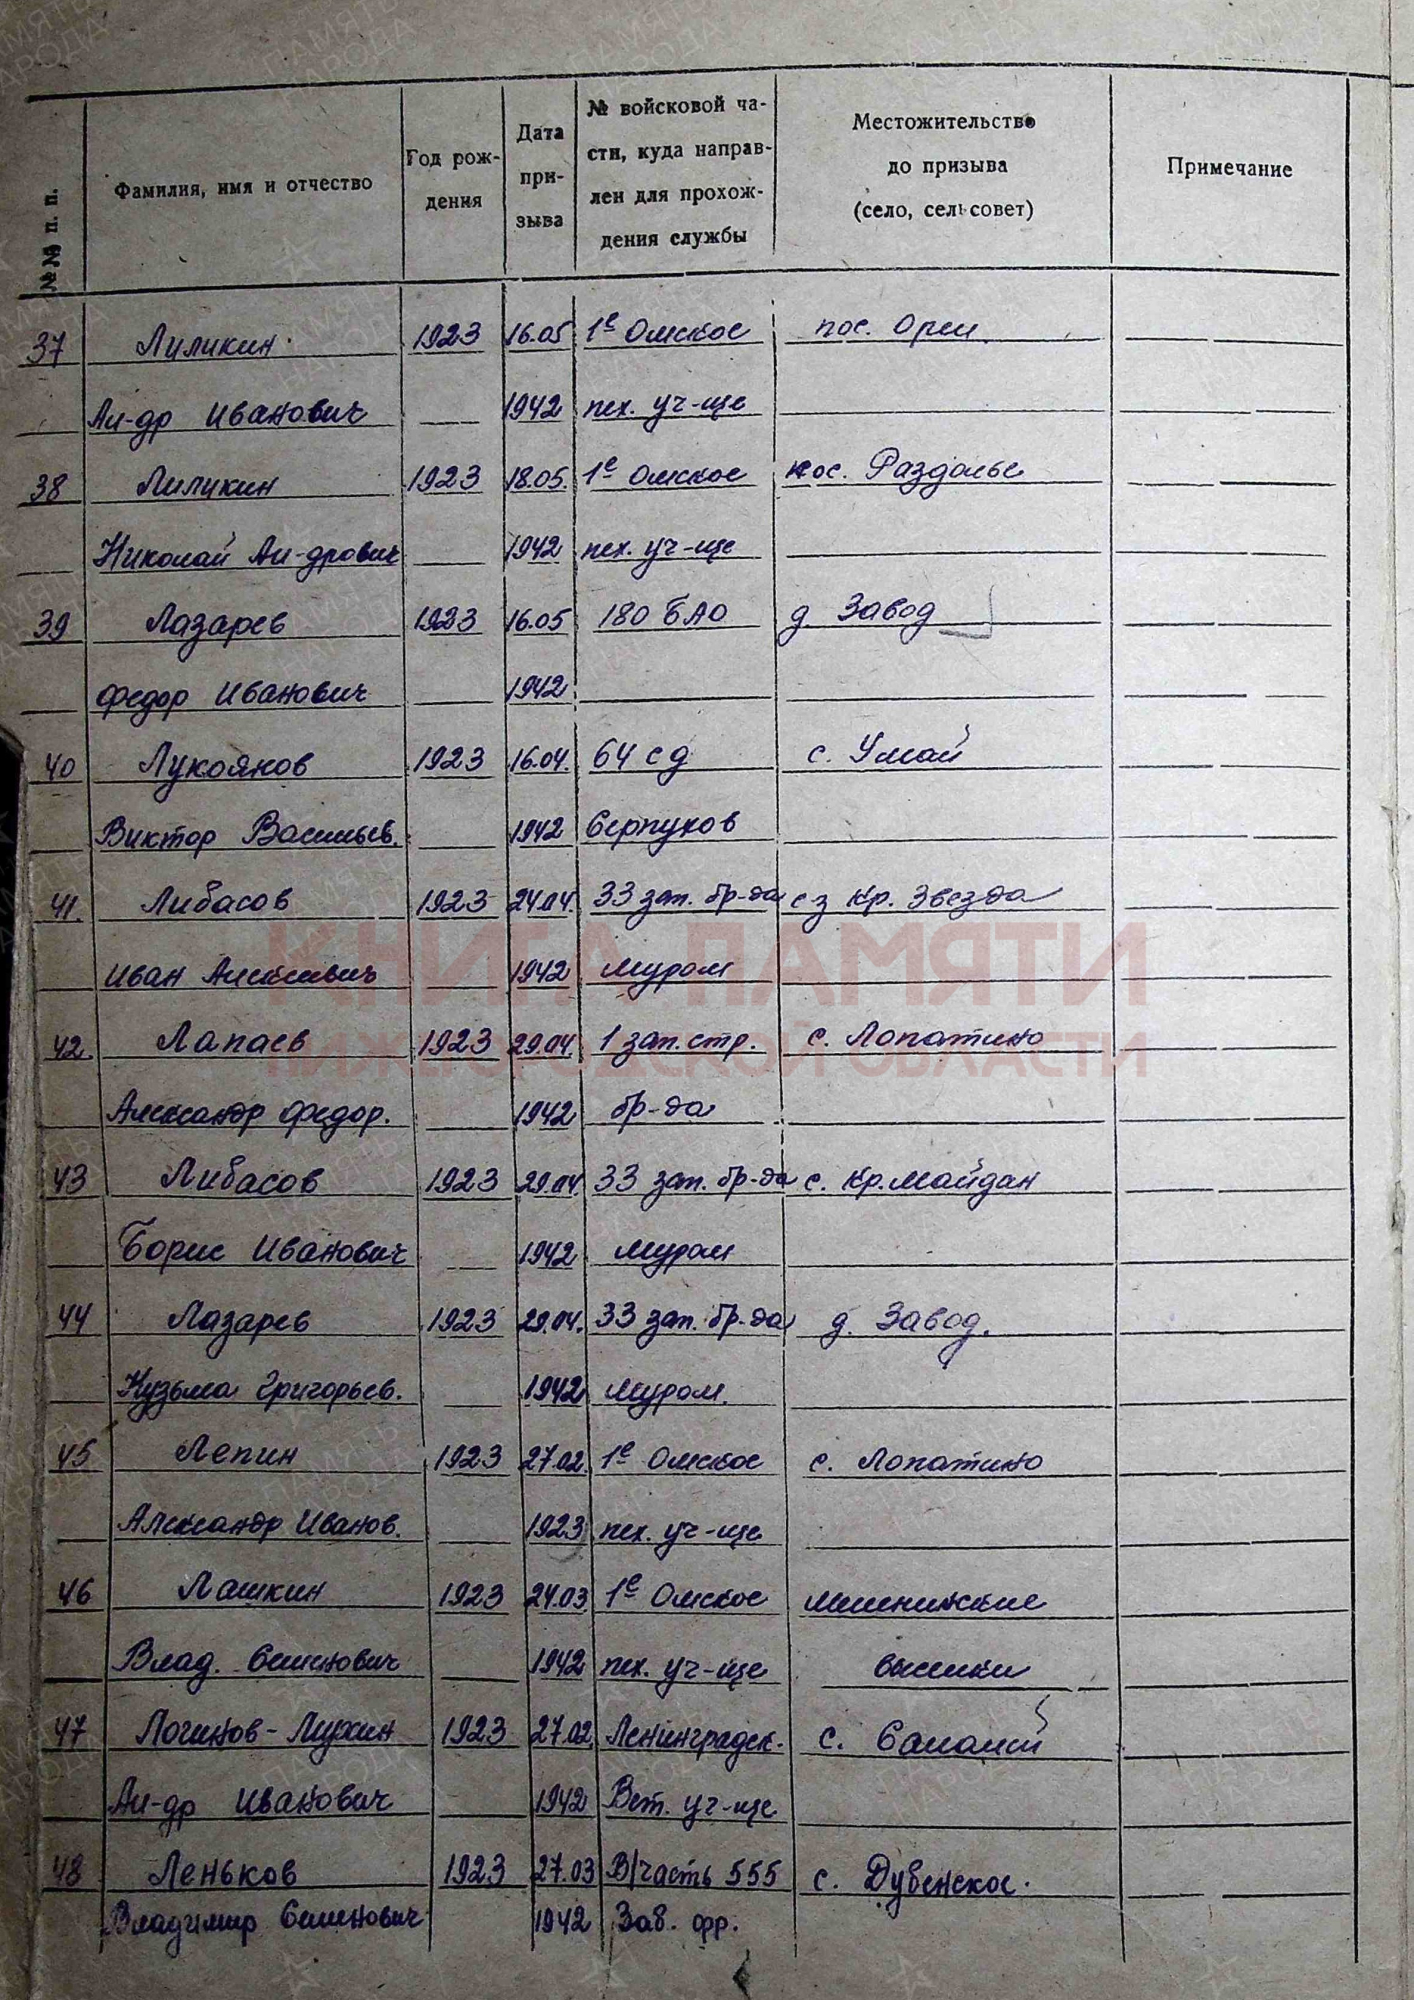 №№ п. п. Фамилия, имя и отчество Год рождения Дата призыва № войсковой части, куда направлен для прохождения службы Местожительство до призыва (село, сельсовет) Примечание
37 Лиликин 1923 16.05 1е Омское пос. Орел
Ал-др Иванович 1942 пех. уч-ще
38 Лиликин 1923 18.05. 1е Омское пос. Раздолье
Николай Ал-дрович 1942 пех. уч-ще
39 Лазарев 1923 16.05 180 БАО д. Завод
Федор Иванович 1942
40 Лукоянов 1923 16.04. 64 сд с. Умай
Виктор Васильев. 1942 Серпухов
41. Либасов 1923 24.04. 33 зап. бр-да с-з Кр. Звезда
Иван Алексеевич 1942 Муром
42. Лапаев 1923 29.04. 1 зап. стр. с. Лопатино
Александр Федор. 1942 бр-да
43 Либасов 1923 29.04. 33 зап. бр-да с. Кр. Майдан
Борис Иванович 1942 Муром
44 Лазарев 1923 29.04. 33 зап. бр-да д. Завод.
Кузьма Григорьев. 1942 Муром.
45 Лепин 1923 27.02. 1е Омское с. Лопатино
Александр Иванов. 1923 пех. уч-ще
46 Лашкин 1923 24.03. 1е Омское
Влад. Семенович 1942 пех. уч-ще выселки
47 Логинов-Лухин 1923 27.02. Ленинградск. с.
Ал-др Иванович 1942 Вет. уч-ще
48 Леньков 1923 27.03 В/часть 555 с. Дубенское.
Владимир Семенович 1942 Зав. фр.
КНИГА ПАМЯТИ
НИЖЕГОРОДСКОЙ ОБЛАСТИ
ПАМЯТЬ НАРОДА